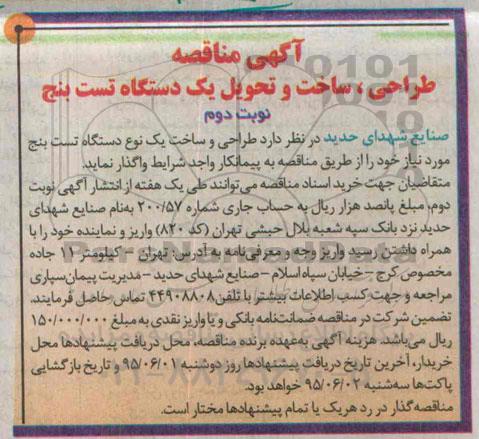 آگهی مناقصه
طراحی ، ساخت و تحویل یک دستگاه تست بنچ
نوبت دوم
صنایع شهدای حدید در نظر دارد طراحی و ساخت یک نوع دستگاه تست بنچ
مورد نیاز خود را از طریق مناقصه به پیمانکار واجد شرایط واگذار نماید.
متقاضیان جهت خرید اسناد مناقصه می‌توانند طی یک هفته از انتشار آگهی نوبت
دوم، مبلغ پانصد هزار ریال به حساب جاری شماره ۲۰۰/۵۷ به‌نام صنایع شهدای
حدید نزد بانک سپه شعبه بلال حبشی تهران (کد ۸۲۰) واریز و نماینده خود را با
همراه داشتن رسید واریز وجه و معرفی‌نامه به آدرس: تهران – کیلومتر ۱۱ جاده
مخصوص کرج – خیابان سپاه اسلام – صنایع شهدای حدید – مدیریت پیمان‌سپاری
مراجعه و جهت کسب اطلاعات بیشتر با تلفن ۴۴۹۰۸۸۰۸ تماس حاصل فرمایند.
تضمین شرکت در مناقصه ضمانت‌نامه بانکی و یا واریز نقدی به مبلغ ۱۵۰/۰۰۰/۰۰۰
ریال می‌باشد. هزینه آگهی به‌عهده برنده مناقصه، محل دریافت پیشنهادها محل
خریدار، آخرین تاریخ دریافت پیشنهادها روز دوشنبه ۹۵/۰۶/۰۱ و تاریخ بازگشایی
پاکت‌ها سه‌شنبه ۹۵/۰۶/۰۲ خواهد بود.
مناقصه‌گذار در رد هریک یا تمام پیشنهادها مختار است.